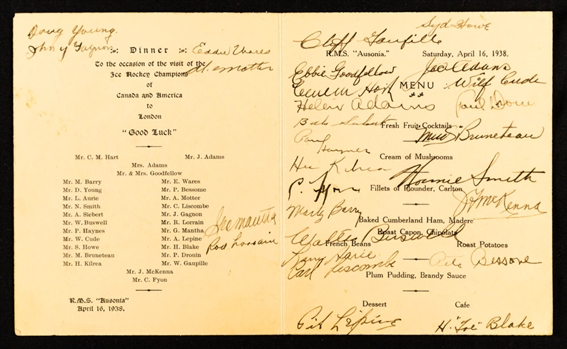 Doug Young
Johnny Gagnon
Dinner
Eddie Wares
To the occasion of the visit of the
Ice Hockey Champions
A. Motter
of
Canada and America
to
London
"Good Luck"
Mr. C. M. Hart Mr. J. Adams
Mrs. Adams
Mr. & Mrs. Goodfellow
Mr. M. Barry Mr. E. Wares
Mr. D. Young Mr. P. Bessome
Mr. L. Aurie Mr. A. Motter
Mr. N. Smith Mr. C. Liscombe
Mr. A. Siebert Mr. J. Gagnon
Mr. W. Buswell Mr. R. Lorrain
Mr. P. Haynes Mr. G. Mantha
Mr. W. Cude Mr. A. Lepine
Mr. S. Howe Mr. H. Blake
Mr. M. Bruneteau Mr. P. Drouin
Mr. H. Kilrea Mr. W. Gaupille
Mr. J. McKenna
Mr. C. Fyon
Geo mantha
Rod Lorrain
R.M.S. "Ausonia"
April 16, 1938.
Syd Howe
Cliff Goupille
R.M.S. "Ausonia." Saturday, April 16, 1938.
Ebbie Goodfellow
Jack Adams
MENU
Wilf Cude
Cecil M. Hart
Helen Adams
Paul Drouin
Babe Siebert
Fresh Fruit Cocktails
Mud Bruneteau
Paul Haynes
Cream of Mushrooms
Hec Kilrea
Normie Smith
Fillets of Plounder, Carlton
J. McKenna
Marty Barry
Baked Cumberland Ham, Madere
Roast Capon, Chipolata
Walter Buswell
French Beans Roast Potatoes
Larry Aurie
Pete Bessone
Carl Liscombe
Plum Pudding, Brandy Sauce
Dessert Cafe
Pit Lépine
H. "Toe" Blake